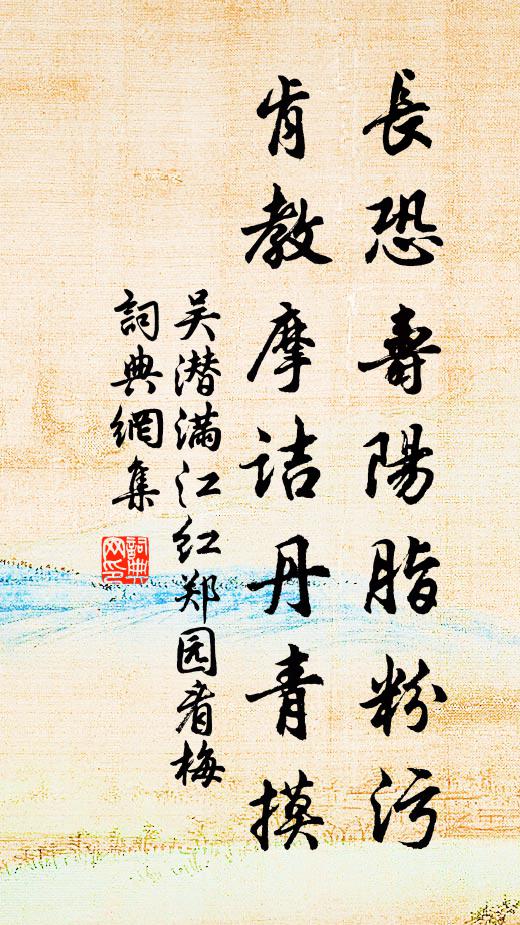 長恐壽陽脂粉污
肯教摩诘丹青摸
吴潜满江红郑园看梅
詞典網集
詞典网印